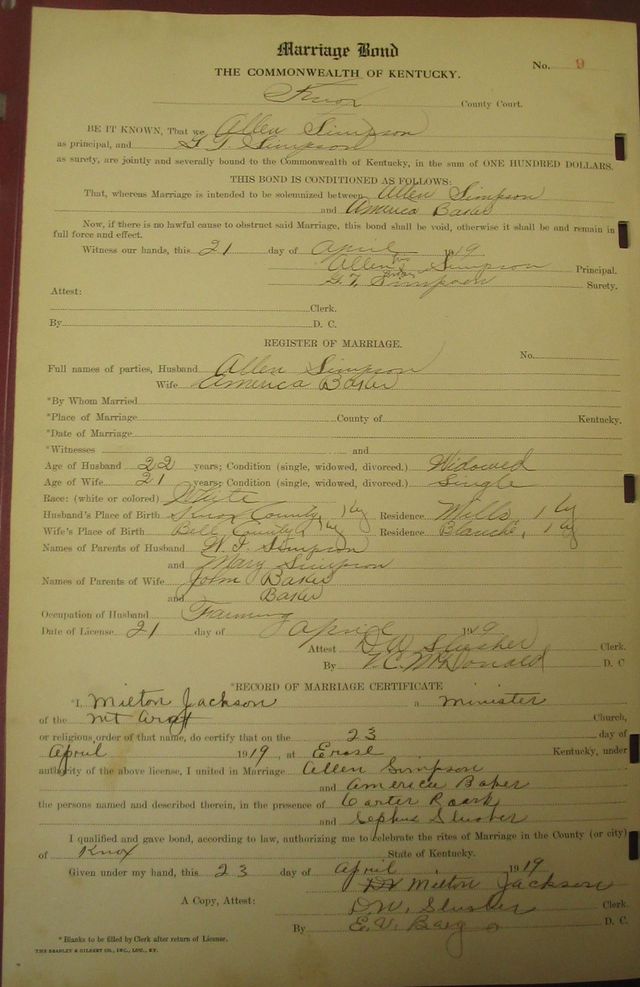 Marriage Bond
THE COMMONWEALTH OF KENTUCKY.
No. 9
Knox County Court.
BE IT KNOWN, That we Allen Simpson
as principal, and G T Simpson
as surety, are jointly and severally bound to the Commonwealth of Kentucky, in the sum of ONE HUNDRED DOLLARS.
THIS BOND IS CONDITIONED AS FOLLOWS:
That, whereas Marriage is intended to be solemnized between Allen Simpson
and America Baker
Now, if there is no lawful cause to obstruct said Marriage, this bond shall be void, otherwise it shall be and remain in
full force and effect.
Witness our hands, this 21 day of April 1919
Allen his Simpson Principal.
G.T. Simpson Surety.
Attest:
Clerk.
By D. C.
REGISTER OF MARRIAGE.
No.
Full names of parties, Husband Allen Simpson
Wife America Baker
*By Whom Married
*Place of Marriage County of Kentucky.
*Date of Marriage
*Witnesses and
Age of Husband 22 years; Condition (single, widowed, divorced.) Widowed
Age of Wife 21 years; Condition (single, widowed, divorced.) Single
Race: (white or colored) White
Husband's Place of Birth Knox County, Ky Residence Mills, Ky
Wife's Place of Birth Bell County, Ky Residence Blanche, Ky
Names of Parents of Husband Simpson
and Mary Simpson
Names of Parents of Wife John Baker
and Baker
Occupation of Husband Farming
Date of License 21 day of April 1919
Attest D.W. Slusher Clerk.
By McDonald D. C
*RECORD OF MARRIAGE CERTIFICATE
*I, Milton Jackson a minister
of the Mt Church,
or religious order of that name, do certify that on the 23 day of
April 1919, at Erose Kentucky, under
authority of the above license, I united in Marriage Allen Simpson
and America Baker
the persons named and described therein, in the presence of Carter Roark
and Cephus Slusher
I qualified and gave bond, according to law, authorizing me to celebrate the rites of Marriage in the County (or city)
of Knox State of Kentucky.
Given under my hand, this 23 day of April, 1919
Milton Jackson
A Copy, Attest: D.W. Slusher Clerk.
By E.V. D. C.
* Blanks to be filled by Clerk after return of License.
THE BRADLEY & GILBERT CO., INC., LOU., KY.